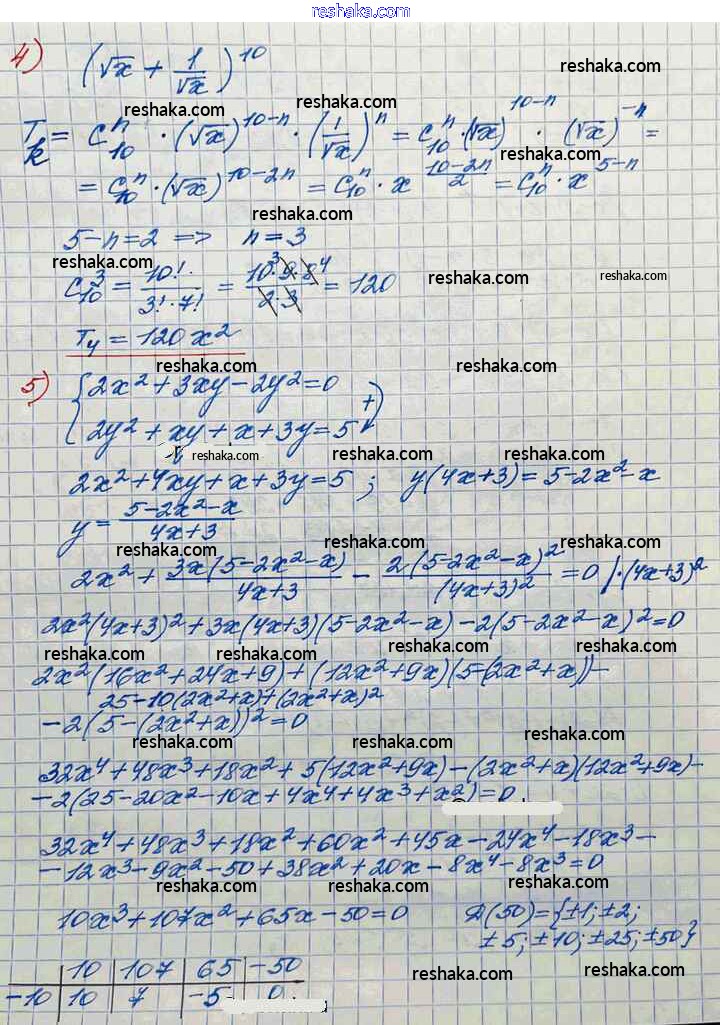 reshaka.com
4) (√x + 1/√x)^10
reshaka.com
T_k = C_10^n · (√x)^(10-n) · (1/√x)^n = C_10^n · (√x)^(10-n) · (√x)^(-n) =
= C_10^n · (√x)^(10-2n) = C_10^n · x^((10-2n)/2) = C_10^n · x^(5-n)
reshaka.com
5-n=2 => n=3
reshaka.com
C_10^3 = 10!/(3!·7!) = (10·9·8)/(2·3) = 120
reshaka.com reshaka.com
T_4 = 120x²
reshaka.com reshaka.com
5) {2x²+3xy-2y²=0
2y²+xy+x+3y=5 +
reshaka.com reshaka.com reshaka.com
2x²+4xy+x+3y=5; y(4x+3)=5-2x²-x
y = (5-2x²-x)/(4x+3)
reshaka.com reshaka.com reshaka.com
2x² + 3x(5-2x²-x)/(4x+3) - 2(5-2x²-x)²/(4x+3)² = 0 /·(4x+3)²
2x²(4x+3)²+3x(4x+3)(5-2x²-x)-2(5-2x²-x)²=0
reshaka.com reshaka.com reshaka.com
2x²(16x²+24x+9)+(12x²+9x)(5-(2x²+x))-
25-10(2x²+x)+(2x²+x)²
-2(5-(2x²+x))²=0
reshaka.com reshaka.com reshaka.com
32x⁴+48x³+18x²+5(12x²+9x)-(2x²+x)(12x²+9x)-
-2(25-20x²-10x+4x⁴+4x³+x²)=0
reshaka.com reshaka.com
32x⁴+48x³+18x²+60x²+45x-24x⁴-18x³-
-12x³-9x²-50+38x²+20x-8x⁴-8x³=0
reshaka.com reshaka.com reshaka.com
10x³+107x²+65x-50=0 Д(50)={±1;±2;
±5;±10;±25;±50}
reshaka.com reshaka.com reshaka.com
10 | 107 | 65 | -50
-10 | 10 | 7 | -5 | 0